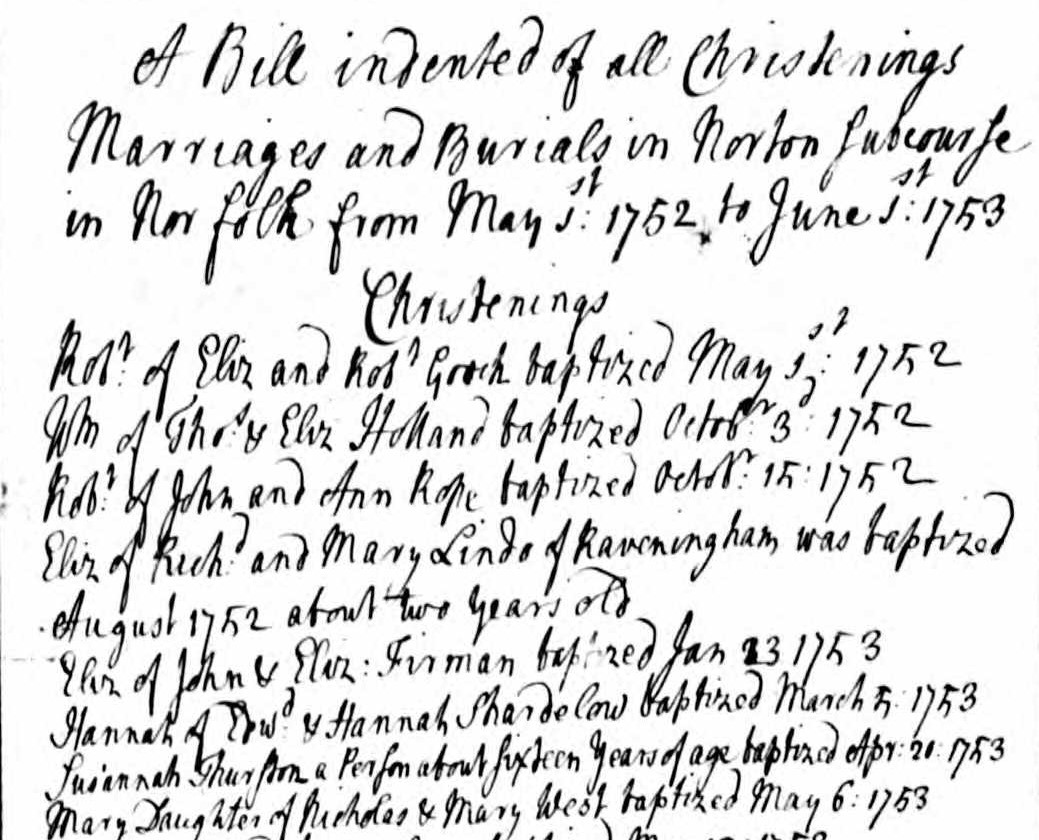 A Bill indented of all Christenings
Marriages and Burials in Norton Subcourse
in Norfolk from May 1st: 1752 to June 1st: 1753
Christenings
Robt: of Eliz and Robt Gooch baptized May 1st: 1752
Wm of Thos: & Eliz Holland baptized Octobr: 3d: 1752
Robt: of John and Ann Rope baptized Octobr: 15: 1752
Eliz of Richd: and Mary Lindo of Raveningham was baptized
August 1752 about two years old
Eliz of John & Eliz: Firman baptized Jan 23 1753
Hannah of Edwd: & Hannah Shardelow baptized March 5: 1753
Susannah Thurston a Person about Sixteen Years of age baptized Apr: 20: 1753
Mary Daughter of Nicholas & Mary West baptized May 6: 1753